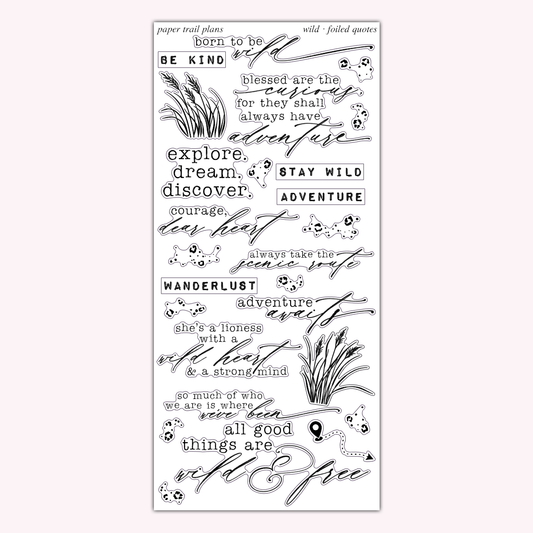 paper trail plans
wild · foiled quotes
born to be
wild
BE KIND
blessed are the
curious
for they shall
always have
adventure
explore.
dream.
discover.
STAY WILD
ADVENTURE
courage,
dear heart
always take the
scenic route
WANDERLUST
adventure
awaits
she's a lioness
with a
wild heart
& a strong mind
so much of who
we are is where
we've been
all good
things are
wild & free